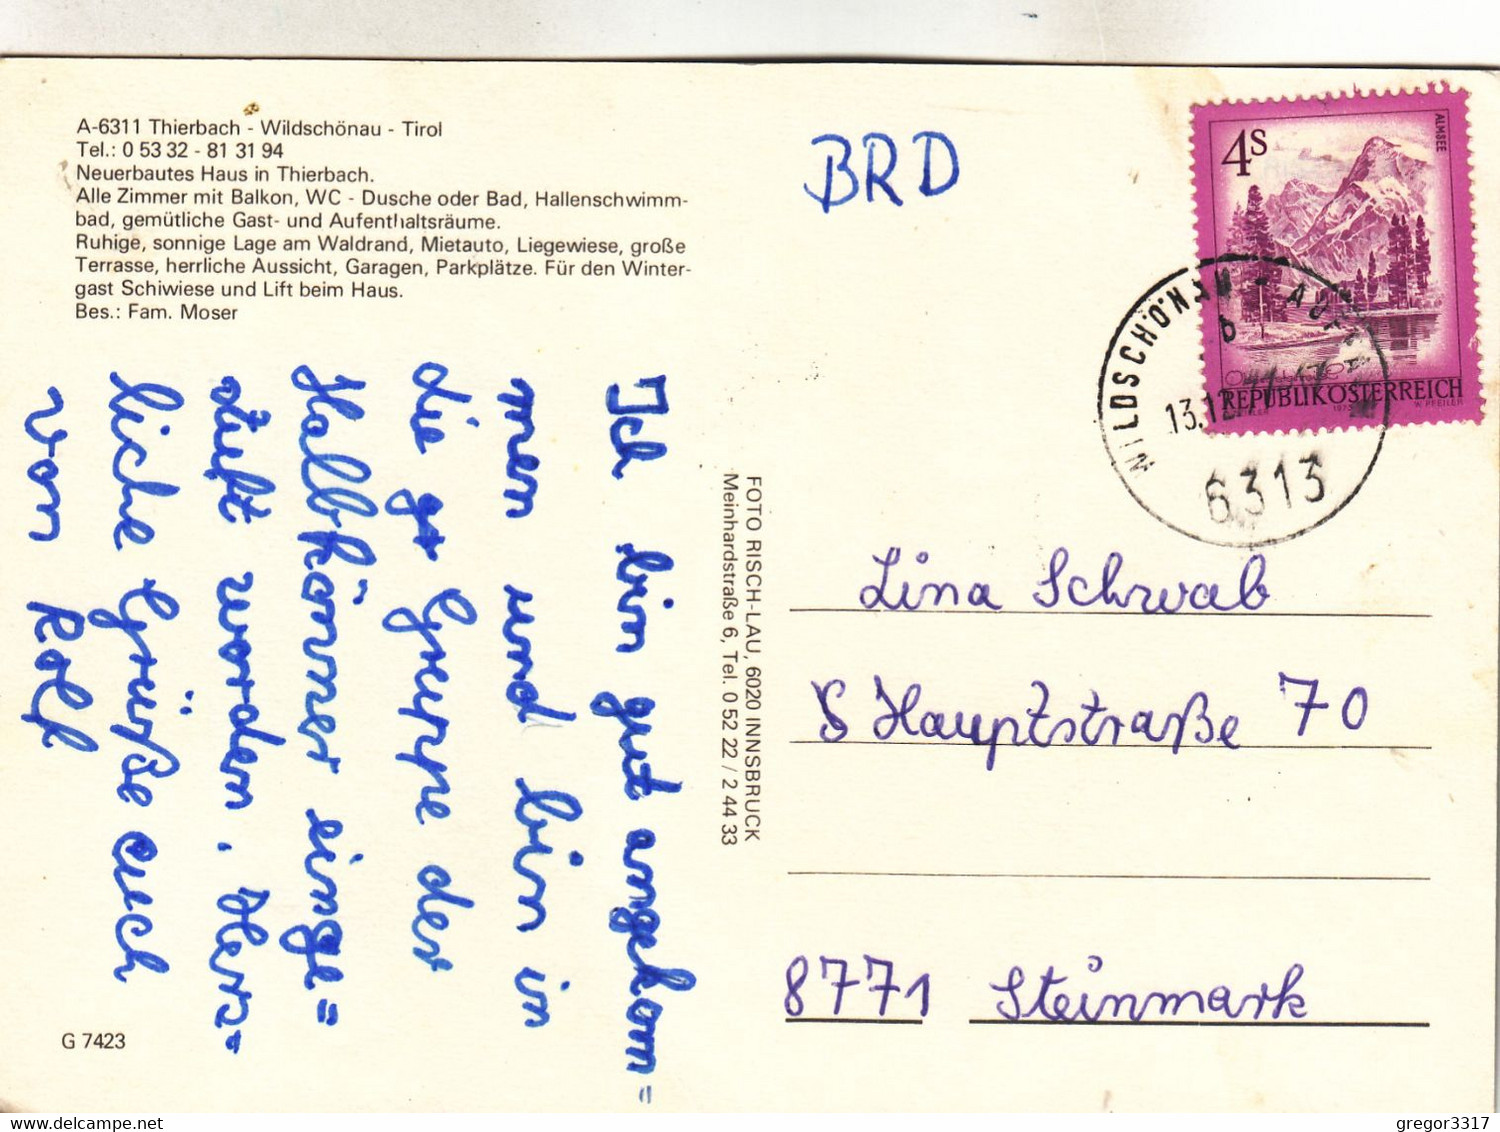 A-6311 Thierbach - Wildschönau - Tirol
Tel.: 0 53 32 - 81 31 94
Neuerbautes Haus in Thierbach.
Alle Zimmer mit Balkon, WC - Dusche oder Bad, Hallenschwimm-
bad, gemütliche Gast- und Aufenthaltsräume.
Ruhige, sonnige Lage am Waldrand, Mietauto, Liegewiese, große
Terrasse, herrliche Aussicht, Garagen, Parkplätze. Für den Winter-
gast Schiwiese und Lift beim Haus.
Bes.: Fam. Moser
Ich bin gut angekom=
men und bin in
die Gruppe der
Halbkönner einge=
stuft worden. Herz-
liche Grüße auch
von Rolf
G 7423
FOTO RISCH-LAU, 6020 INNSBRUCK
Meinhardstraße 6, Tel. 0 52 22 / 2 44 33
BRD
4S
ALMSEE
REPUBLIK ÖSTERREICH
1973
W. PFEILER
WILDSCHÖNAU - AUFFA
b
13.12.
6313
Lina Schwab
Hauptstraße 70
8771 Steinmark
gregor3317